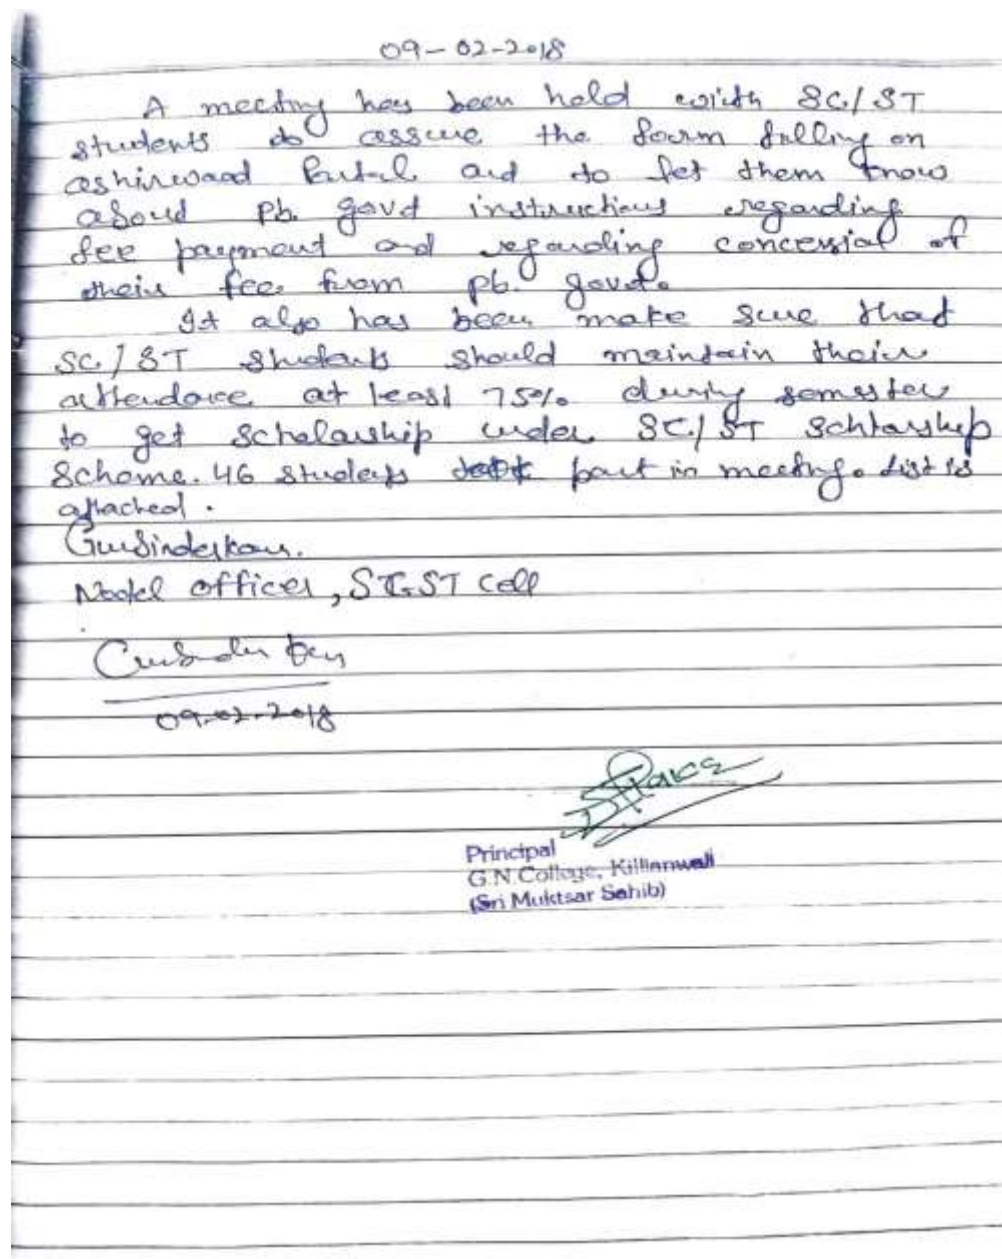 09-02-2018
A meeting has been held with SC/ST
students to assure the form filling on
ashirwaad Portal and to let them know
about Pb. govt instructions regarding
fee payment and regarding concessial of
their fee from pb. govt.
It also has been make sure that
SC/ST students should maintain their
attendance at least 75% during semester
to get scholarship under SC/ST Schlarship
Scheme. 46 students took part in meeting. List is
attached.
Gursinderkaur.
Nodel officer, SC.ST Cell
09-02-2018
Principal
G.N.College, Killianwali
(Sri Muktsar Sahib)